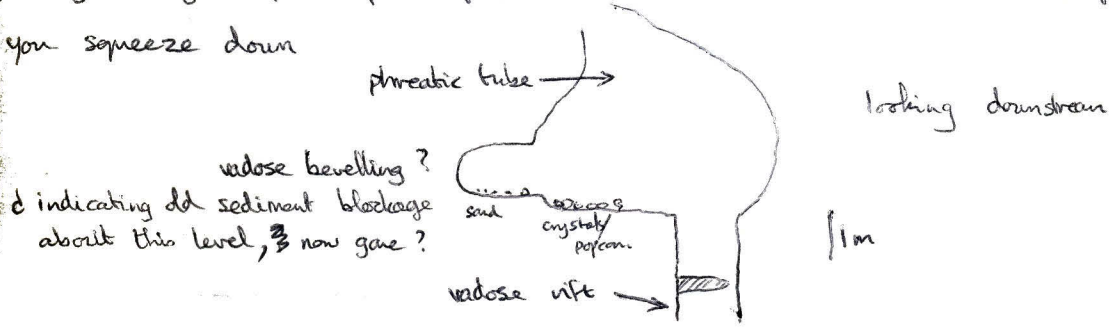 you squeeze down
phreatic tube
looking downstream
vadose bevelling ?
indicating old sediment blockage
about this level, now gone ?
sand
crystals/
popcorn.
1m
vadose rift